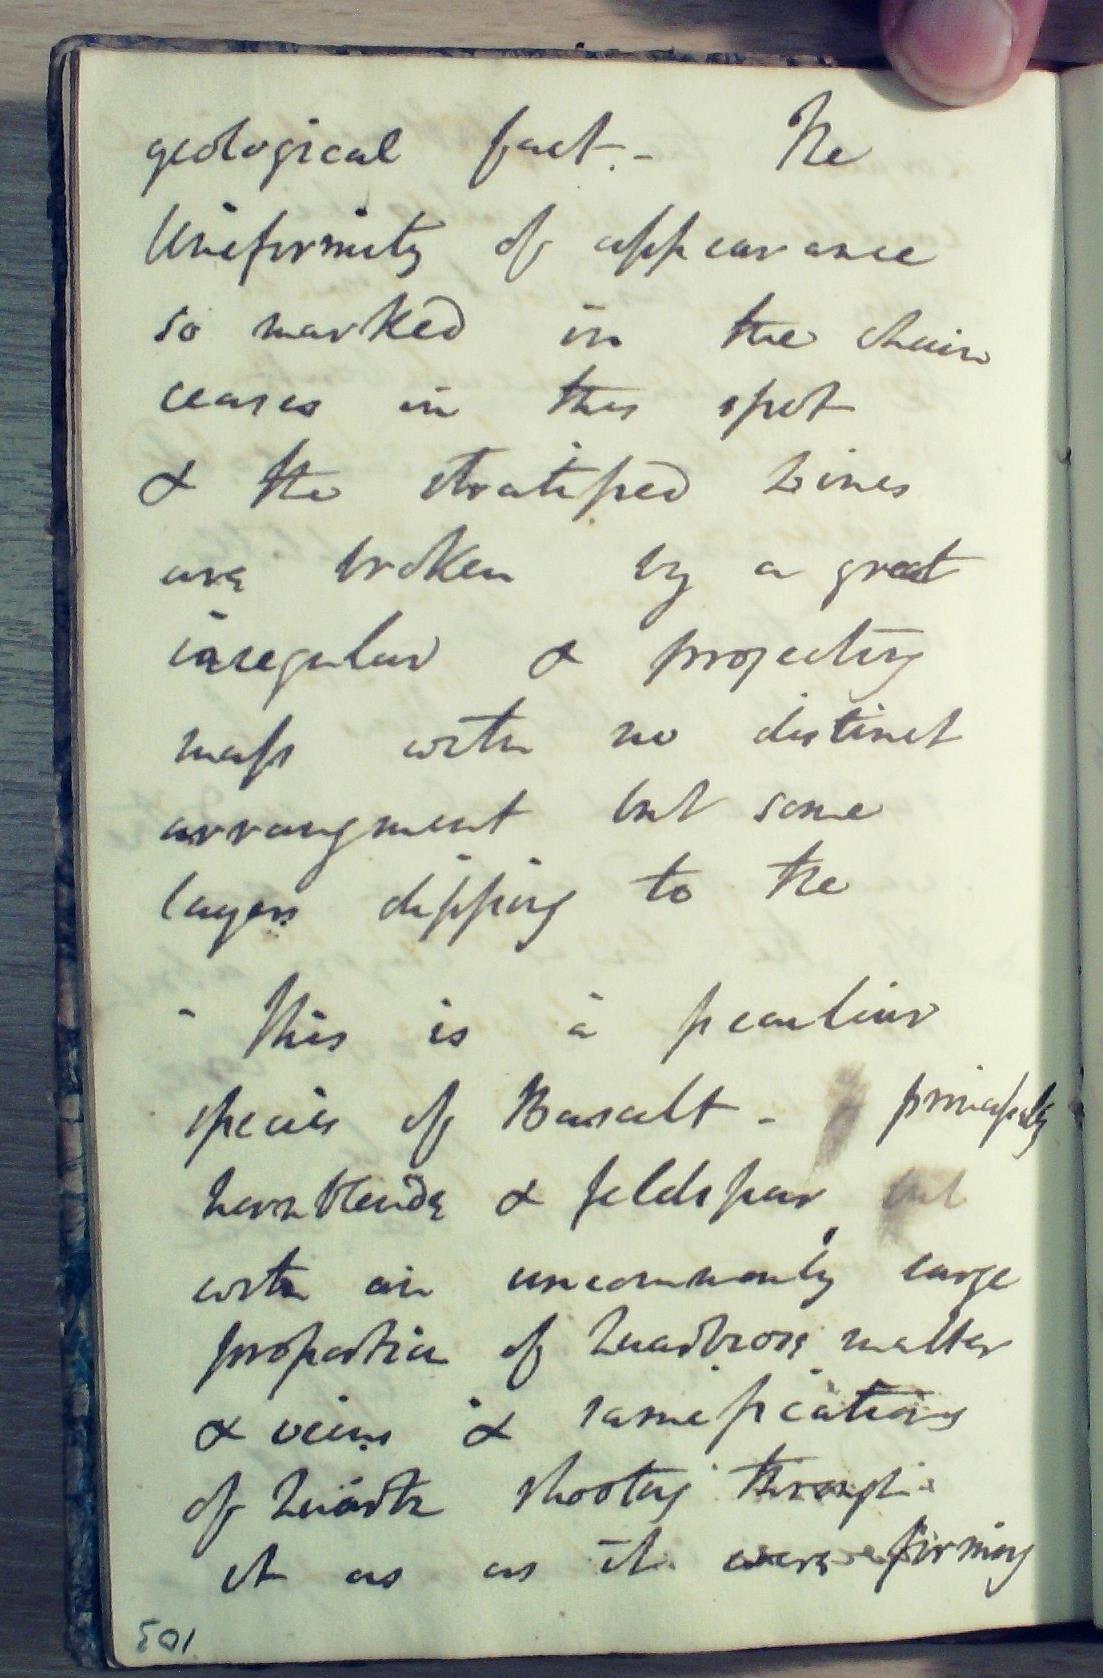 geological fact. - The
Uniformity of appearance
so marked in the chain
ceases in this spot
& the stratified Lines
are broken by a great
irregular & projecting
mass with no distinct
arrangment but some
layers dipping to the
- This is a peculiar
species of Basalt - principally
hornblende & feldspar, but
with an uncommonly large
proportion of Quartzose matter
& veins & ramifications
of Quartz shooting through
it as as it were forming
105